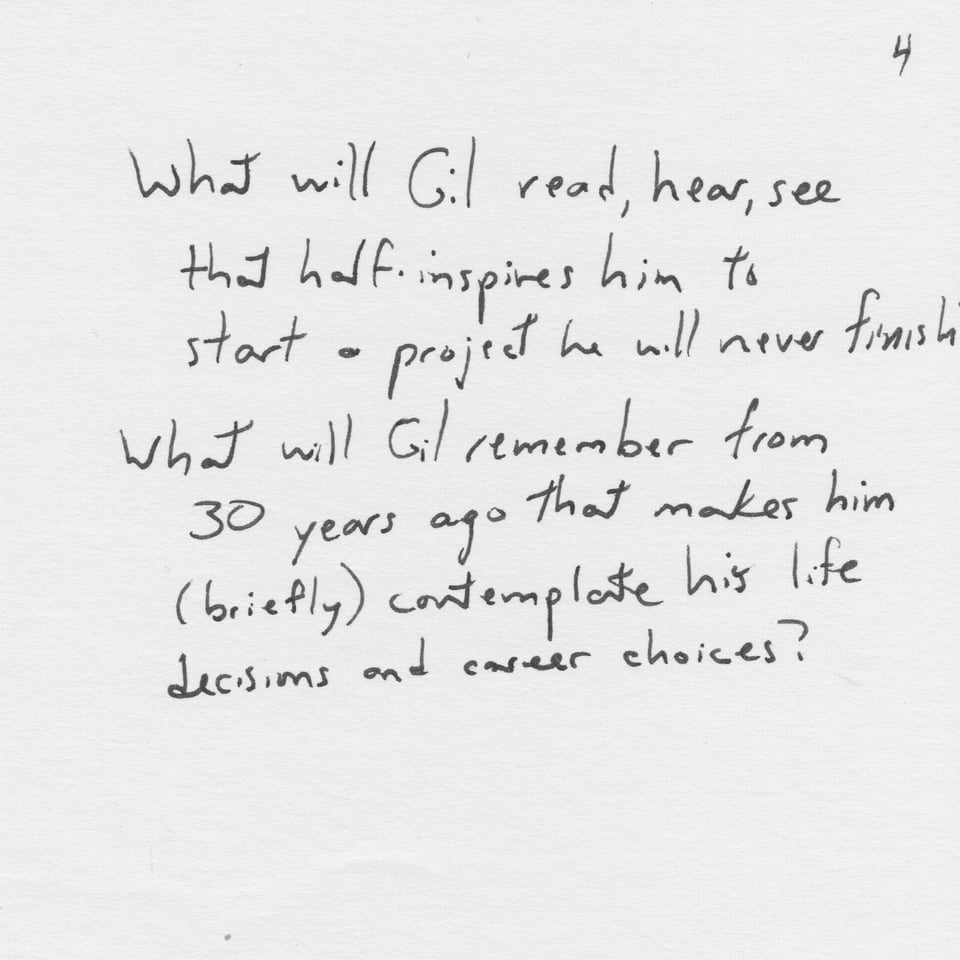 4
What will Gil read, hear, see
that half-inspires him to
start a project he will never finish
What will Gil remember from
30 years ago that makes him
(briefly) contemplate his life
decisions and career choices?